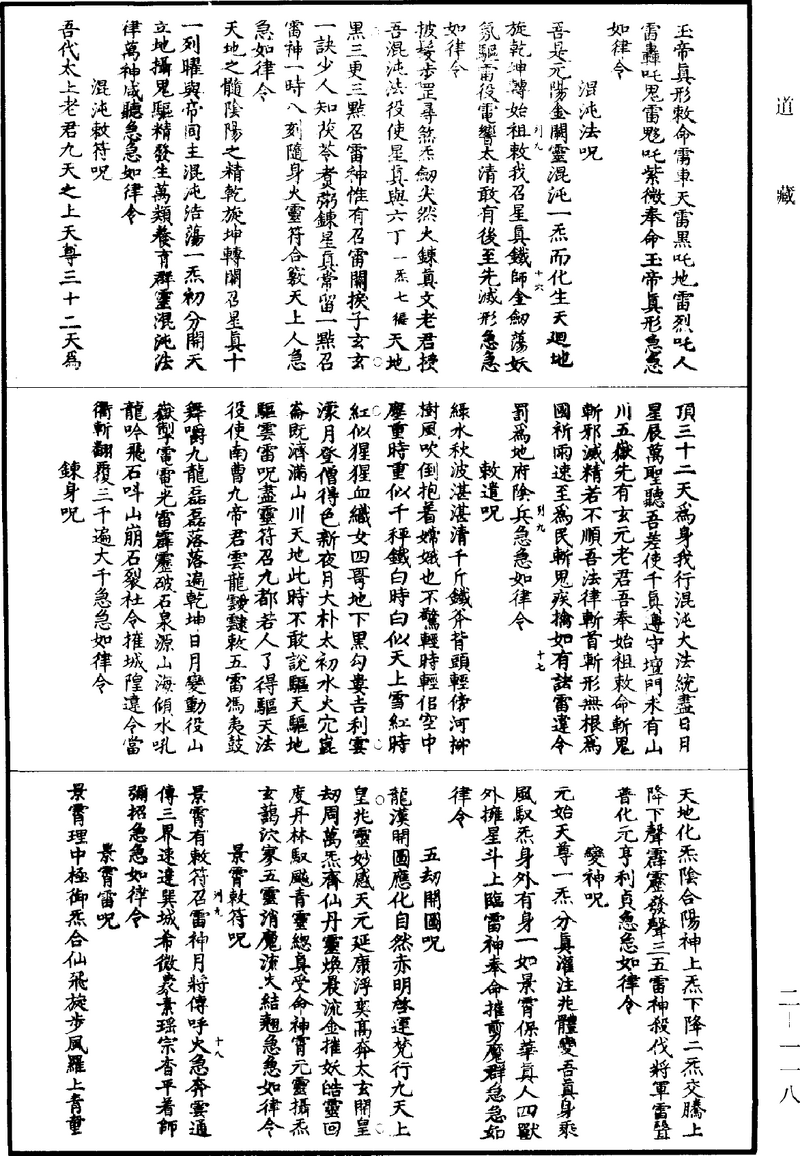 道藏
玉帝真形敕命霹車天雷黑吒地雷烈吒人
雷轟吒鬼雷颩吒紫微奉命玉帝真形急急
如律令
混沌法呪
吾是元陽金闕靈混沌一炁而化生天迴地
旋乾坤轉始祖敕我召星真鐵師金劒蕩妖
氛驅雷役電響太清敢有後至先滅形急急
如律令
披髮步罡尋煞炁劒尖然火鍊真文老君授
吾混沌法役使星真與六丁一炁七徧天地
黑三更三點召雷神惟有召雷關捩子玄玄
一訣少人知茯苓煑粥鍊星真常留一點召
雷神一時八刻隨身火靈符合竅天上人急
急如律令
天地之髓陰陽之精乾旋坤轉闢召星真十
一列曜與帝同主混沌浩蕩一炁初分開天
立地攝鬼驅精發生萬類養育群靈混沌法
律萬神咸聽急急如律令
混沌敕符呪
吾代太上老君九天之上天尊三十二天為
列九
十六
頂三十二天為身我行混沌大法統盡日月
星辰萬聖聽吾差使千真遵守壇門未有山
川五嶽先有玄元老君吾奉始祖敕命斬鬼
斬邪滅精若不順吾法律斬首斬形無根為
國祈雨速至為民斬鬼疾擒如有諸雷違令
罰為地府陰兵急急如律令
敕遣呪
綠水秋波湛湛清千斤鐵斧背頭輕傍河柳
樹風吹倒抱着嫦娥也不驚輕時輕侣空中
塵重時重似千秤鐵白時白似天上雪紅時
紅似猩猩血織女四哥地下黑勾婁吉利雲
濛月登僧得色新夜月大朴太初水火穴崑
崙既濟滿山川天地此時不敢說驅天驅地
驅雲雷呪盡靈符召九都若人了得驅天法
役使南曹九帝君雲龍靉靆敕五雷馮夷鼓
舞嚼九龍磊磊落落遍乾坤日月變動役山
嶽掣電雷光雷霹靂破石泉源山海傾水吼
龍吟飛石吽山崩石裂社令摧城隍違令當
衢斬翻覆三千遍大千急急如律令
鍊身呪
列九
十七
天地化炁陰合陽神上炁下降二炁交騰上
降下聲霹靂發聲三五雷神殺伐將軍雷聲
普化元亨利貞急急如律令
變神呪
元始天尊一炁分真灌注兆體變吾真身乘
風馭炁身外有身一如景霄保華真人四獸
外擁星斗上臨雷神奉命摧剪魔群急急如
律令
五劫開圖呪
龍漢開圖應化自然赤明啓運梵行九天上
皇兆靈妙感天元延康浮爽高奔太玄開皇
劫周萬炁齊仙丹靈煥晨流金摧妖皓靈回
度丹林馭飈青靈總真受命神霄元靈攝炁
玄鷮泬寥五靈消魔流火結翹急急如律令
景霄敕符呪
景霄有敕符召雷神月將傳呼火急奔雲通
傳三界速達異城希微象素瑤宗杳平着師
彌招急急如律令
景霄雷呪
景霄理中極御炁合仙飛旋步風羅上青童
列九
十八
二—一一八